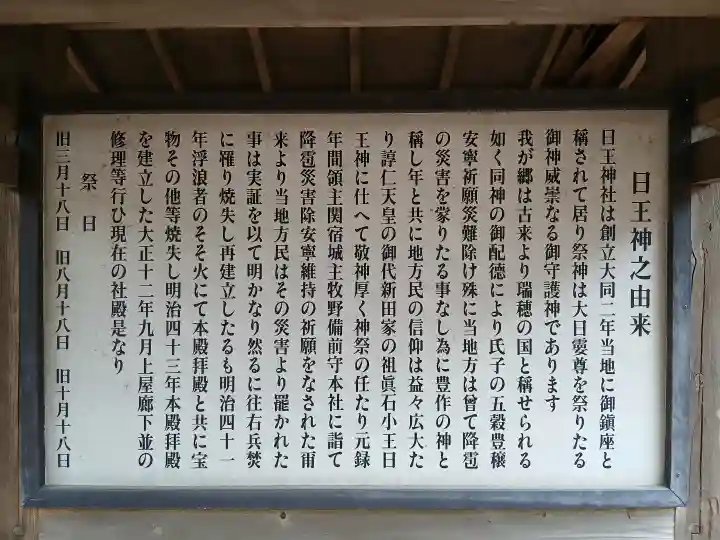 日王神之由来
日王神社は創立大同二年当地に御鎮座と
稱されて居り祭神は大日孁尊を祭りたる
御神威崇なる御守護神であります
我が郷は古来より瑞穂の国と稱せられる
如く同神の御配徳により氏子の五穀豊穣
安寧祈願災難除け殊に当地方は曾て降雹
の災害を蒙りたる事なし為に豊作の神と
稱し年と共に地方民の信仰は益々広大た
り淳仁天皇の御代新田家の祖眞石小王日
王神に仕へて敬神厚く神祭の任たり元録
年間領主関宿城主牧野備前守本社に詣て
降雹災害除安寧維持の祈願をなされた甫
来より当地方民はその災害より罹かれた
事は実証を以て明かなり然るに往右兵燹
に罹り焼失し再建立したるも明治四十一
年浮浪者のそそ火にて本殿拝殿と共に宝
物その他等焼失し明治四十三年本殿拝殿
を建立した大正十二年九月上屋廊下並の
修理等行ひ現在の社殿是なり
祭日
旧三月十八日 旧八月十八日 旧十月十八日